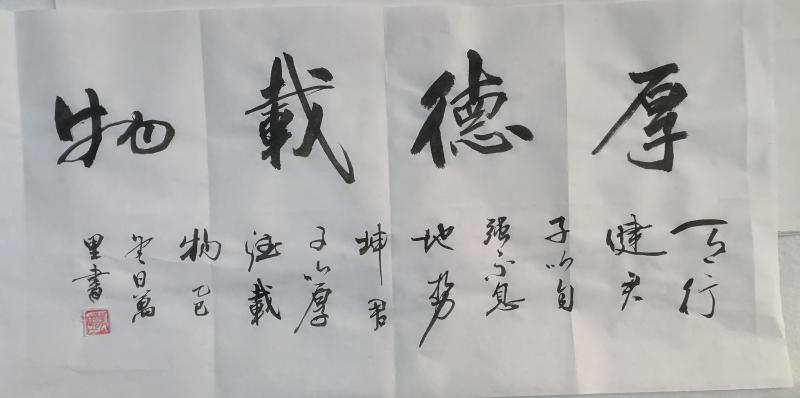 厚德載物
天行
健君
子以自
强不息
地勢
坤君
子以厚
德載
物乙巳
日萬
里書